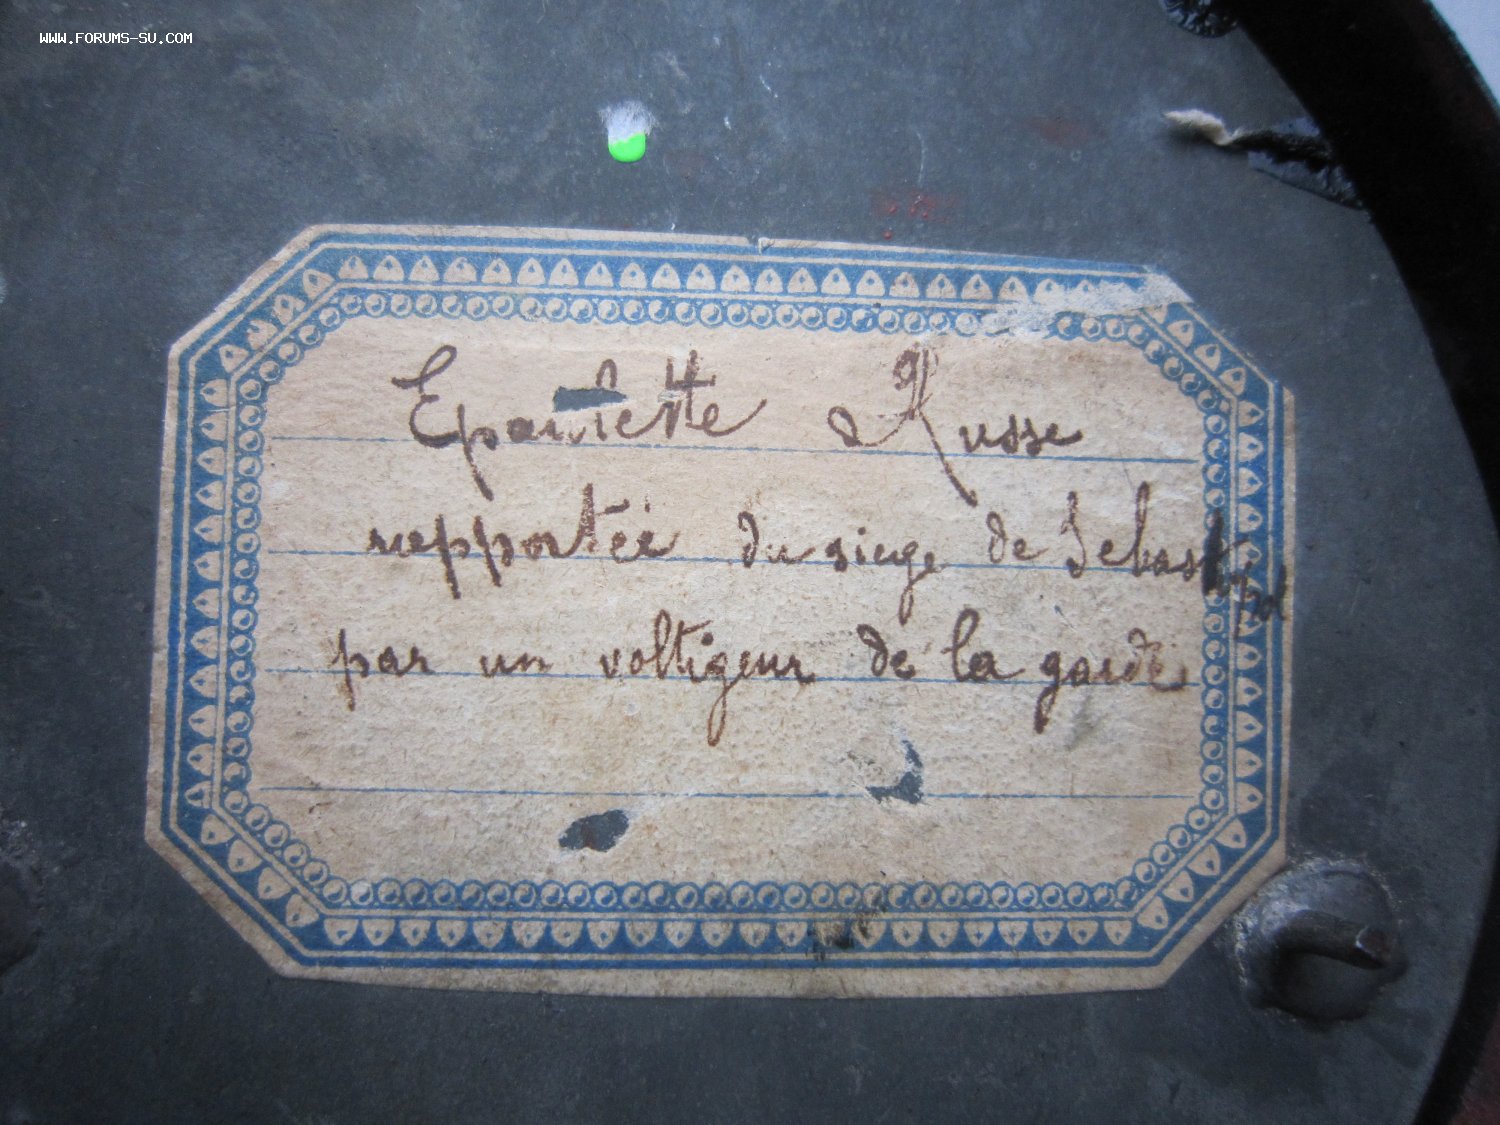 WWW.FORUMS-SU.COM
Epaulette Russe
rapportée du siege de Sebastopol
par un voltigeur de la garde